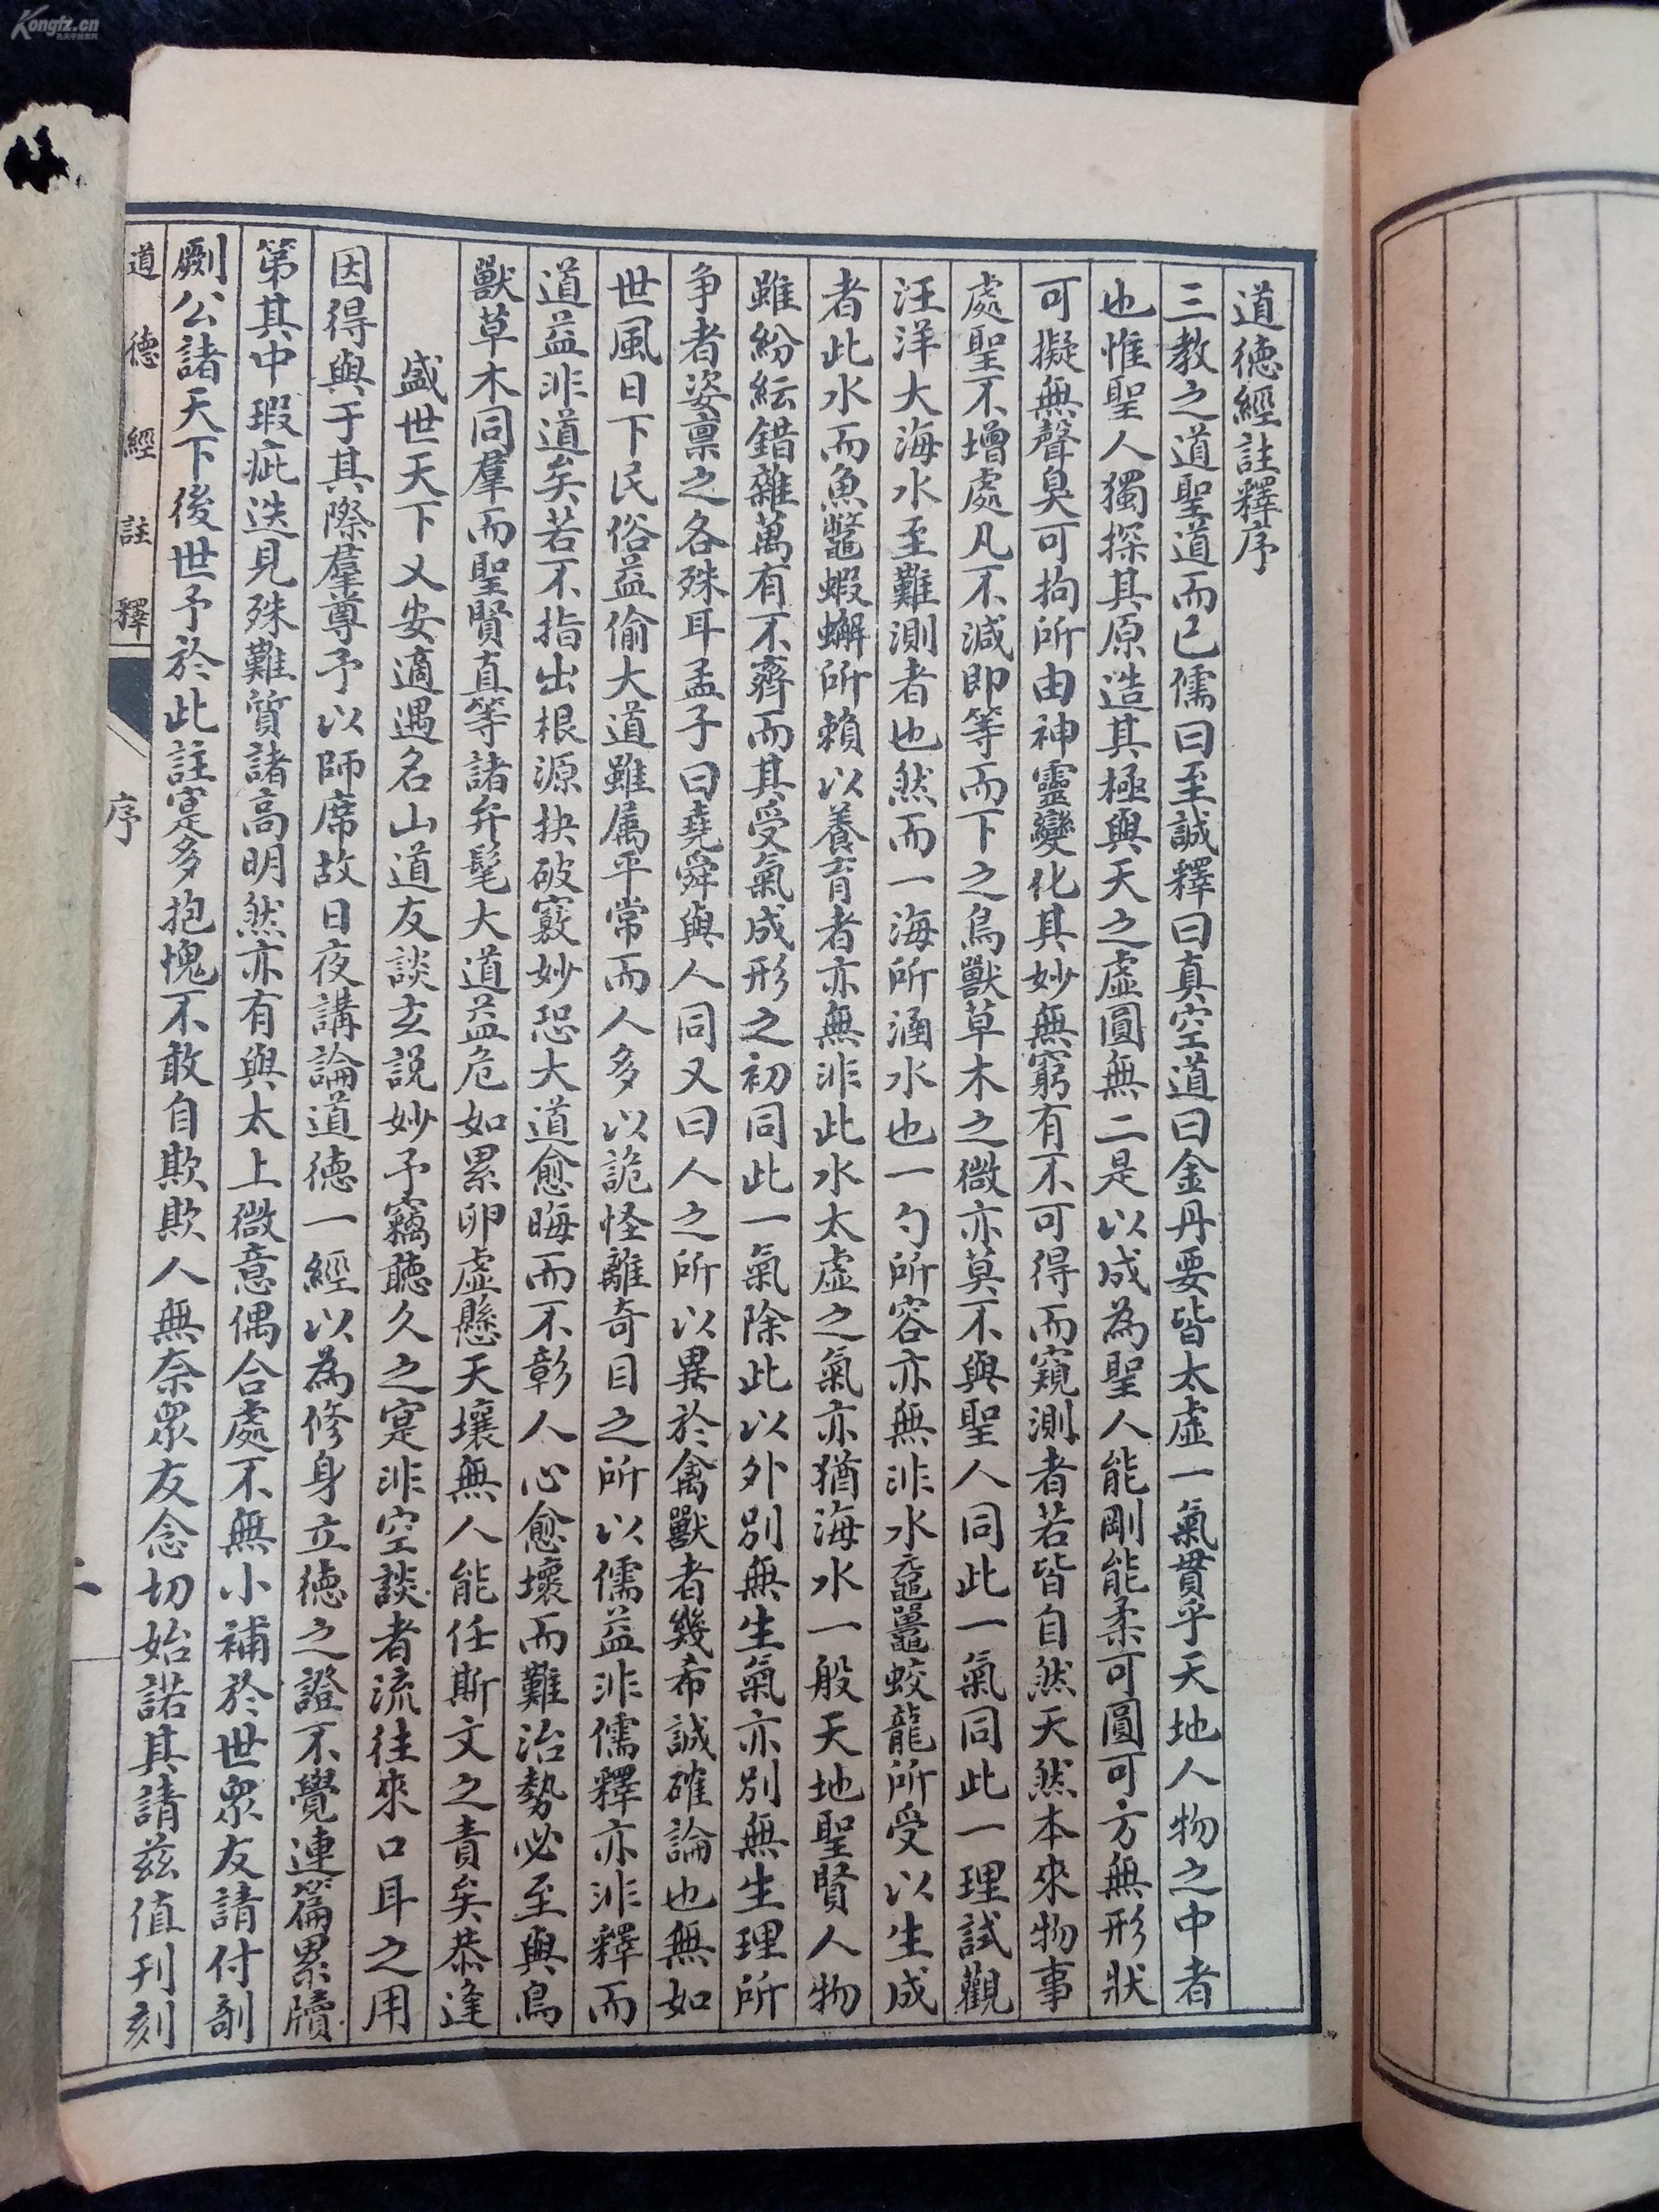 道德經註釋序
三教之道聖道而已儒曰至誠釋曰真空道曰金丹要皆太虛一氣貫乎天地人物之中者
也惟聖人獨探其原造其極與天之虛圓無二是以成為聖人能剛能柔可圓可方無形狀
可擬無聲臭可拘所由神靈變化其妙無窮有不可得而窺測者若皆自然天然本來物事
處聖不增處凡不減即等而下之鳥獸草木之微亦莫不與聖人同此一氣同此一理試觀
汪洋大海水至難測者也然而一海所涵水也一勺所容亦無非水黿鼉蛟龍所受以生成
者此水而魚鼈蝦蠏所賴以養育者亦無非此水太虛之氣亦猶海水一般天地聖賢人物
雖紛紜錯雜萬有不齊而其受氣成形之初同此一氣除此以外別無生氣亦別無生理所
争者姿禀之各殊耳孟子曰堯舜與人同又曰人之所以異於禽獸者幾希誠確論也無如
世風日下民俗益偷大道雖属平常而人多以詭怪離奇目之所以儒益非儒釋亦非釋而
道益非道矣若不指出根源抉破竅妙恐大道愈晦而不彰人心愈壞而難治勢必至與鳥
獸草木同羣而聖賢直等諸弁髦大道益危如累卵虛懸天壤無人能任斯文之責矣恭逢
盛世天下乂安適遇名山道友談玄説妙予竊聽久之寔非空談者流往來口耳之用
因得與于其際羣尊予以師席故日夜講論道德一經以為修身立德之證不覺連篇累牘
第其中瑕疵迭見殊難質諸高明然亦有與太上微意偶合處不無小補於世眾友請付剞
劂公諸天下後世予於此註寔多抱愧不敢自欺欺人無奈眾友念切始諾其請兹值刊刻
道德經註釋
序
Kongfz.cn